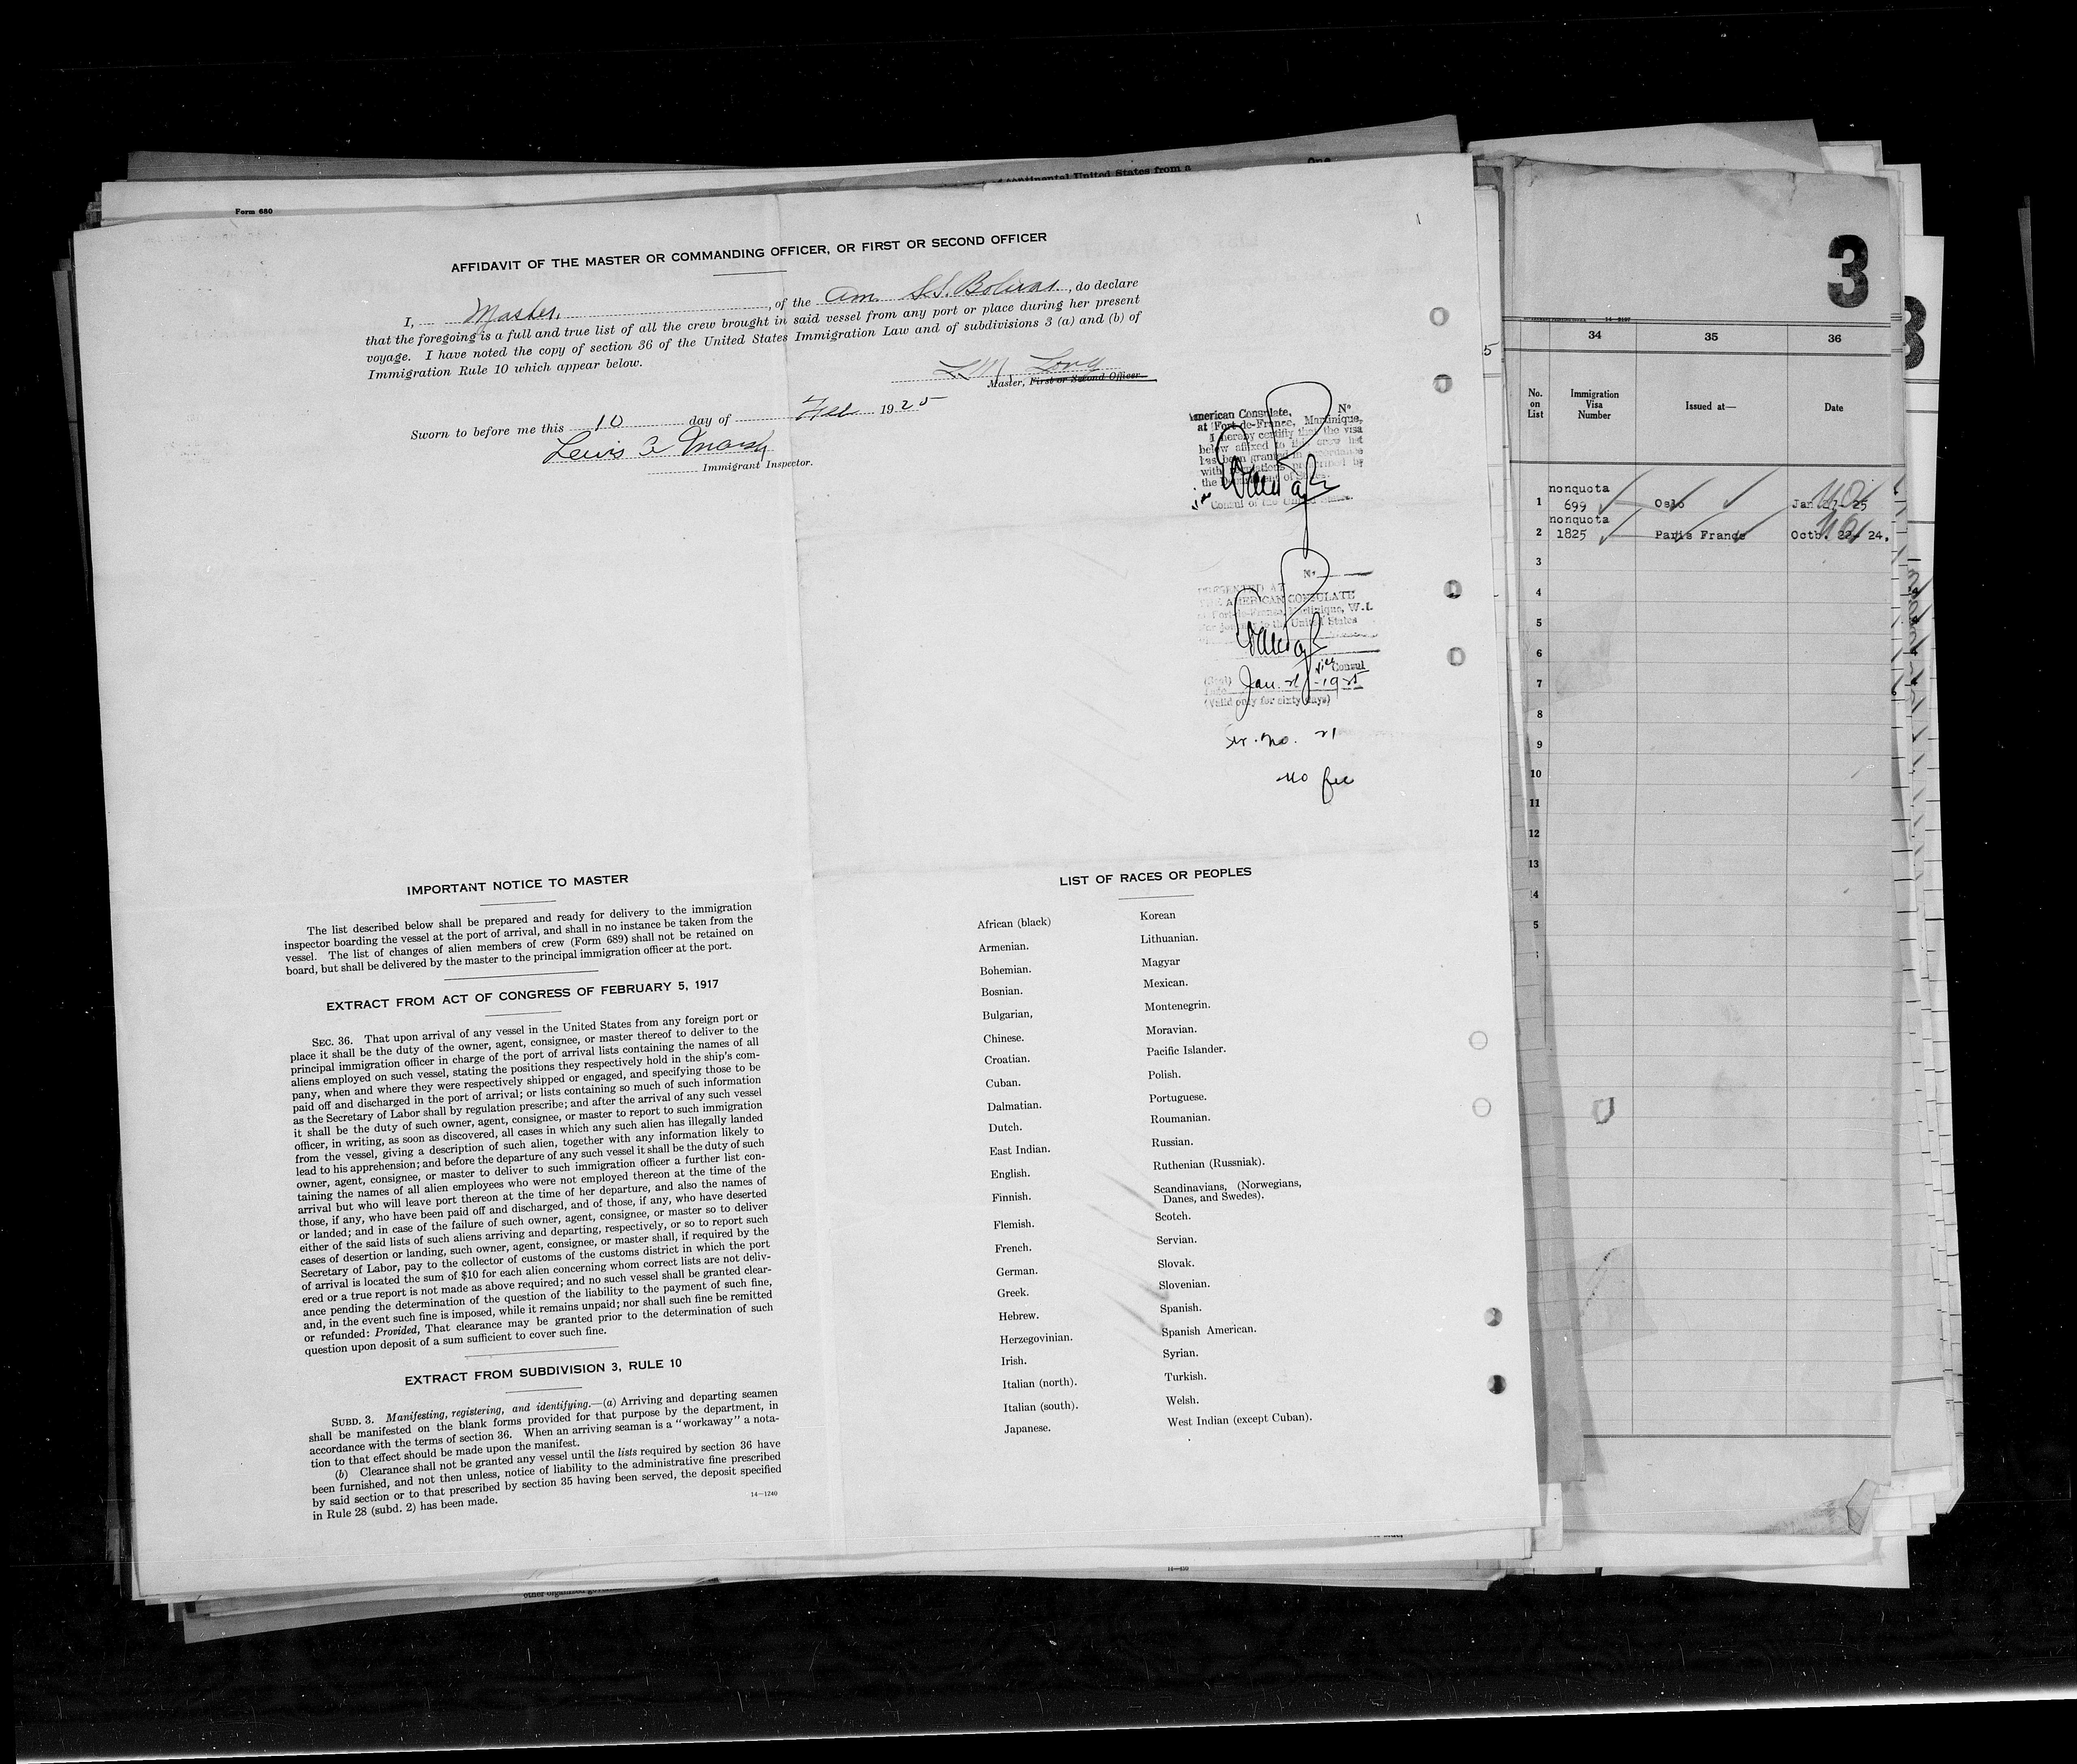 One
continental United States from a
Form 680
AFFIDAVIT OF THE MASTER OR COMMANDING OFFICER, OR FIRST OR SECOND OFFICER
I, Master, of the Am. S.S. Bolivar, do declare
that the foregoing is a full and true list of all the crew brought in said vessel from any port or place during her present
voyage. I have noted the copy of section 36 of the United States Immigration Law and of subdivisions 3 (a) and (b) of
Immigration Rule 10 which appear below.
L M Long
Master, First or Second Officer
Sworn to before me this 10 day of Feb 1925
Lewis
Immigrant Inspector.
American Consulate, No
at Fort-de-France, Martinique,
I hereby certify that the visa
below affixed to this crew list
has been granted in accordance
with regulations prescribed by
the Department of State.
Consul of the United States.
No
PRESENTED AT
AMERICAN CONSULATE
Fort-de-France, Martinique, W.I.
to the United States
Vice Consul
(Seal) Jan. 21 - 1925
(Valid only for sixty days)
Ser. No. 21
no fee
IMPORTANT NOTICE TO MASTER
The list described below shall be prepared and ready for delivery to the immigration
inspector boarding the vessel at the port of arrival, and shall in no instance be taken from the
vessel. The list of changes of alien members of crew (Form 689) shall not be retained on
board, but shall be delivered by the master to the principal immigration officer at the port.
EXTRACT FROM ACT OF CONGRESS OF FEBRUARY 5, 1917
SEC. 36. That upon arrival of any vessel in the United States from any foreign port or
place it shall be the duty of the owner, agent, consignee, or master thereof to deliver to the
principal immigration officer in charge of the port of arrival lists containing the names of all
aliens employed on such vessel, stating the positions they respectively hold in the ship's com-
pany, when and where they were respectively shipped or engaged, and specifying those to be
paid off and discharged in the port of arrival; or lists containing so much of such information
as the Secretary of Labor shall by regulation prescribe; and after the arrival of any such vessel
it shall be the duty of such owner, agent, consignee, or master to report to such immigration
officer, in writing, as soon as discovered, all cases in which any such alien has illegally landed
from the vessel, giving a description of such alien, together with any information likely to
lead to his apprehension; and before the departure of any such vessel it shall be the duty of such
owner, agent, consignee, or master to deliver to such immigration officer a further list con-
taining the names of all alien employees who were not employed thereon at the time of the
arrival but who will leave port thereon at the time of her departure, and also the names of
those, if any, who have been paid off and discharged, and of those, if any, who have deserted
or landed; and in case of the failure of such owner, agent, consignee, or master so to deliver
either of the said lists of such aliens arriving and departing, respectively, or so to report such
cases of desertion or landing, such owner, agent, consignee, or master shall, if required by the
Secretary of Labor, pay to the collector of customs of the customs district in which the port
of arrival is located the sum of $10 for each alien concerning whom correct lists are not deliv-
ered or a true report is not made as above required; and no such vessel shall be granted clear-
ance pending the determination of the question of the liability to the payment of such fine,
and, in the event such fine is imposed, while it remains unpaid; nor shall such fine be remitted
or refunded: Provided, That clearance may be granted prior to the determination of such
question upon deposit of a sum sufficient to cover such fine.
EXTRACT FROM SUBDIVISION 3, RULE 10
SUBD. 3. Manifesting, registering, and identifying.—(a) Arriving and departing seamen
shall be manifested on the blank forms provided for that purpose by the department, in
accordance with the terms of section 36. When an arriving seaman is a "workaway" a nota-
tion to that effect should be made upon the manifest.
(b) Clearance shall not be granted any vessel until the lists required by section 36 have
been furnished, and not then unless, notice of liability to the administrative fine prescribed
by said section or to that prescribed by section 35 having been served, the deposit specified
in Rule 28 (subd. 2) has been made.
14—1240
LIST OF RACES OR PEOPLES
African (black)
Armenian.
Bohemian.
Bosnian.
Bulgarian,
Chinese.
Croatian.
Cuban.
Dalmatian.
Dutch.
East Indian.
English.
Finnish.
Flemish.
French.
German.
Greek.
Hebrew.
Herzegovinian.
Irish.
Italian (north).
Italian (south).
Japanese.
Korean
Lithuanian.
Magyar
Mexican.
Montenegrin.
Moravian.
Pacific Islander.
Polish.
Portuguese.
Roumanian.
Russian.
Ruthenian (Russniak).
Scandinavians, (Norwegians,
Danes, and Swedes).
Scotch.
Servian.
Slovak.
Slovenian.
Spanish.
Spanish American.
Syrian.
Turkish.
Welsh.
West Indian (except Cuban).
14—450
3
34 35 36
No. on List
Immigration Visa Number
Issued at—
Date
1 nonquota 699 Oslo Jan 25
2 nonquota 1825 Paris France Octb. 22 24.
3
4
5
6
7
8
9
10
11
12
13
14
5